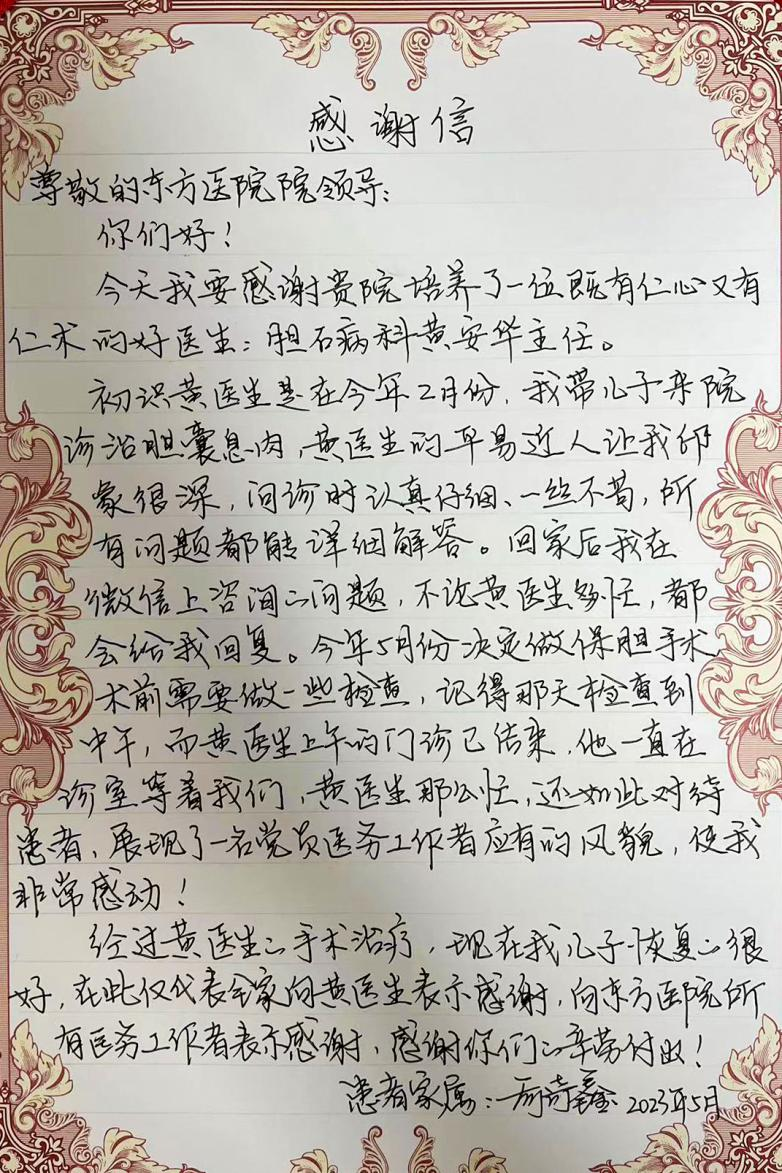 感谢信
尊敬的东方医院院领导:
你们好!
今天我要感谢贵院培养了一位既有仁心又有
仁术的好医生:胆石病科黄安华主任。
初识黄医生是在今年2月份,我带儿子来院
诊治胆囊息肉,黄医生的平易近人让我印
象很深,问诊时认真仔细、一丝不苟,所
有问题都能详细解答。回家后我在
微信上咨询的问题,不论黄医生多忙,都
会给我回复。今年5月份决定做保胆手术,
术前需要做一些检查,记得那天检查到
中午,而黄医生上午的门诊已结束,他一直在
诊室等着我们,黄医生那么忙,还如此对待
患者,展现了一名党员医务工作者应有的风貌,使我
非常感动!
经过黄医生的手术治疗,现在我儿子恢复的很
好,在此仅代表全家向黄医生表示感谢,向东方医院所
有医务工作者表示感谢,感谢你们的辛劳付出!
患者家属: 2023年5月